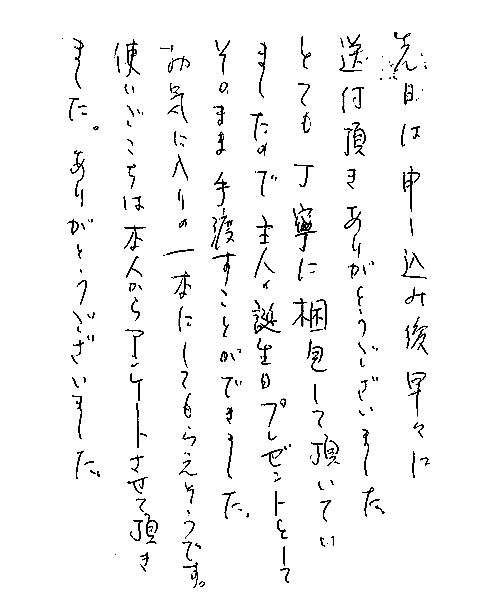 先日は申し込み後早々に
送付頂きありがとうございました。
とても丁寧に梱包して頂いてい
ましたので主人の誕生日プレゼントとして
そのまま手渡すことができました。
お気に入りの一本にしてもらえそうです。
使いごこちは本人からアンケートさせて頂き
ました。ありがとうございました。